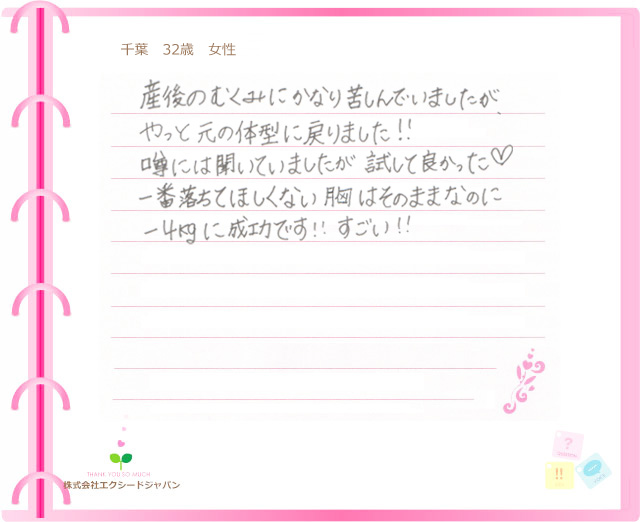 千葉　32歳　女性
産後のむくみにかなり苦しんでいましたが、
やっと元の体型に戻りました!!
噂には聞いていましたが 試して良かった♡
一番落ちてほしくない胸はそのままなのに
-4kgに成功です!! すごい!!
THANK YOU SO MUCH
株式会社エクシードジャパン
?
!!